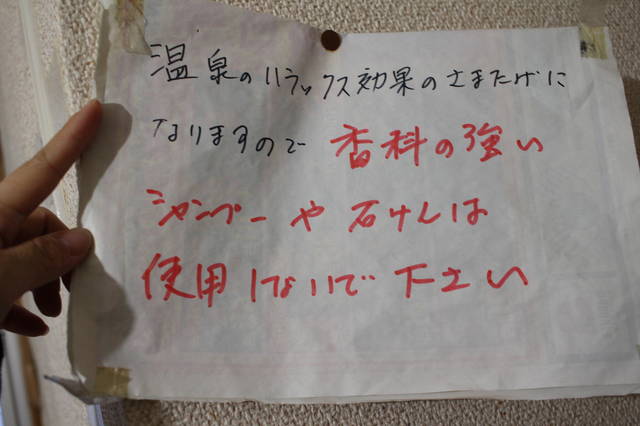 温泉のリラックス効果のさまたげに
なりますので 香料の強い
シャンプーや石けんは
使用しないで下さい